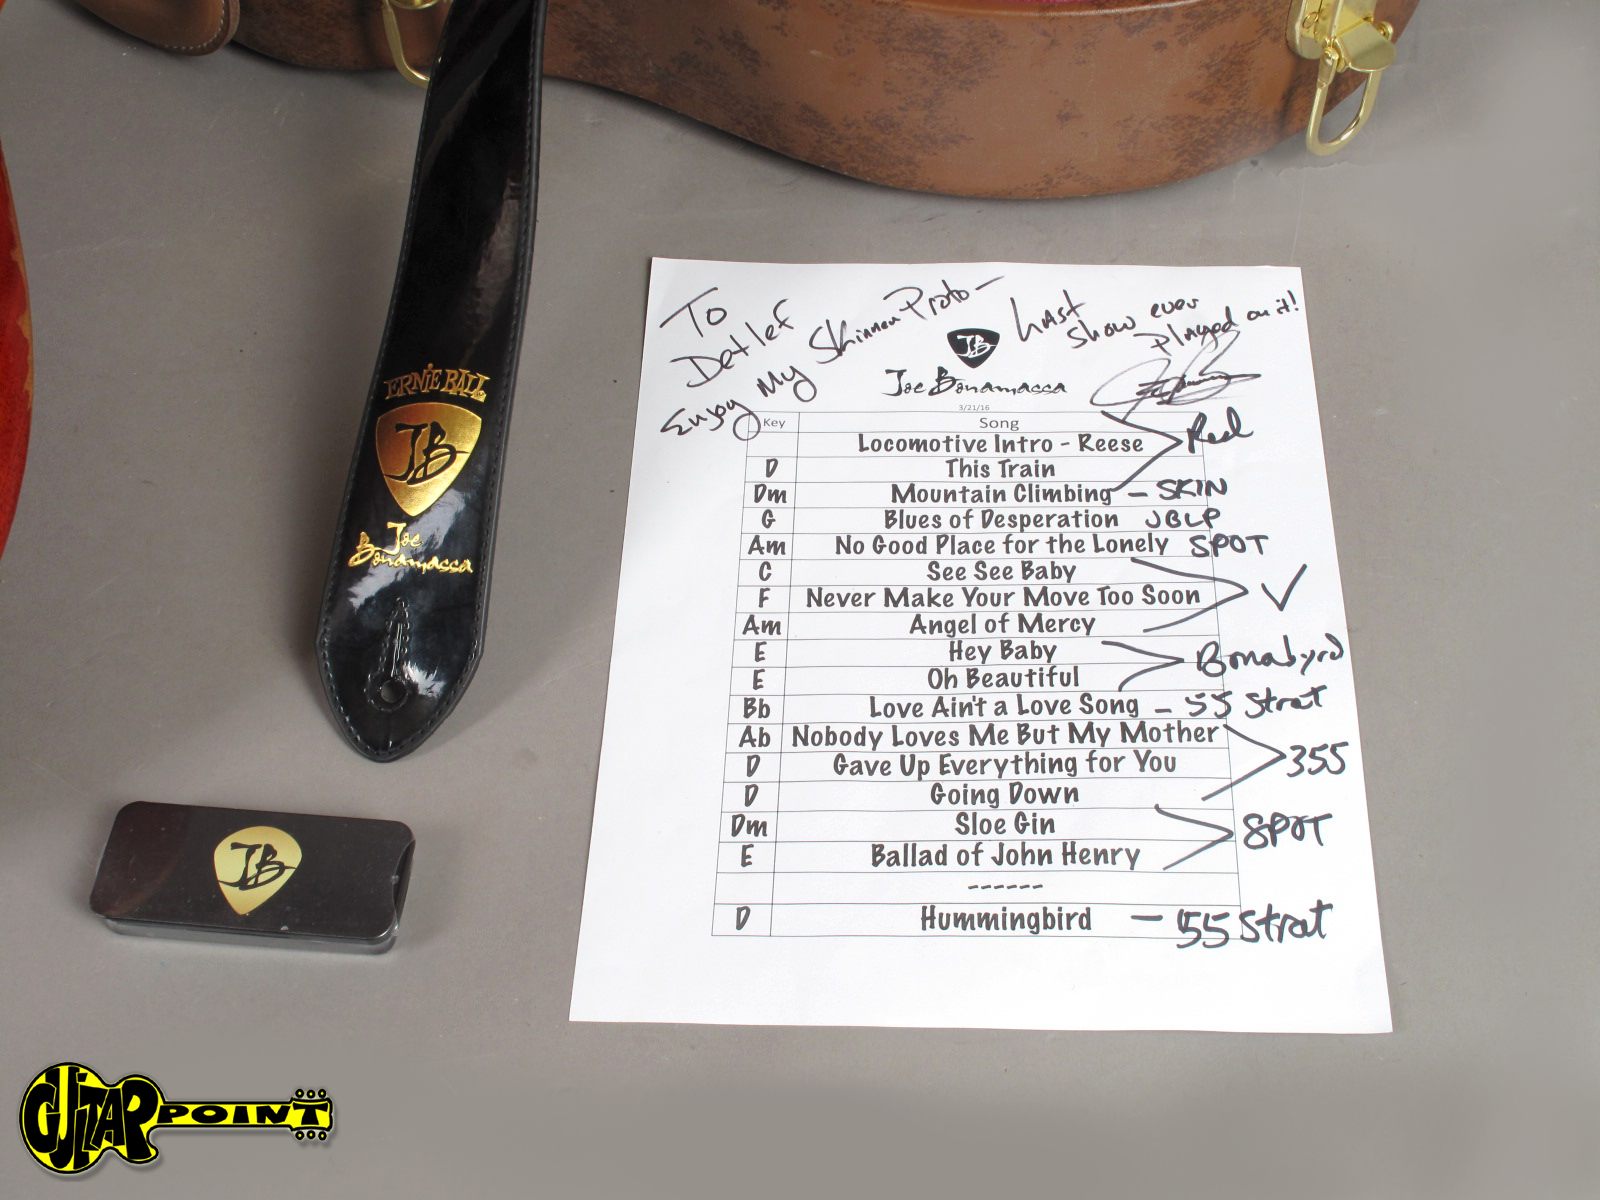 ERNIE BALL
JB
Joe
Bonamassa
JB
To
Detlef
Enjoy My Skinner Proto -
Last
Show ever
Played on it!
JB
Joe Bonamassa
3/21/16
Key Song
Locomotive Intro - Reese
Red
D This Train
Dm Mountain Climbing - SKIN
G Blues of Desperation JBLP
Am No Good Place for the Lonely SPOT
C See See Baby
F Never Make Your Move Too Soon ✓
Am Angel of Mercy
E Hey Baby
Bonabyrd
E Oh Beautiful
Bb Love Ain't a Love Song - 55 Strat
Ab Nobody Loves Me But My Mother
D Gave Up Everything for You 355
D Going Down
Dm Sloe Gin
SPOT
E Ballad of John Henry
------
D Hummingbird - 55 Strat
GUITAR POINT